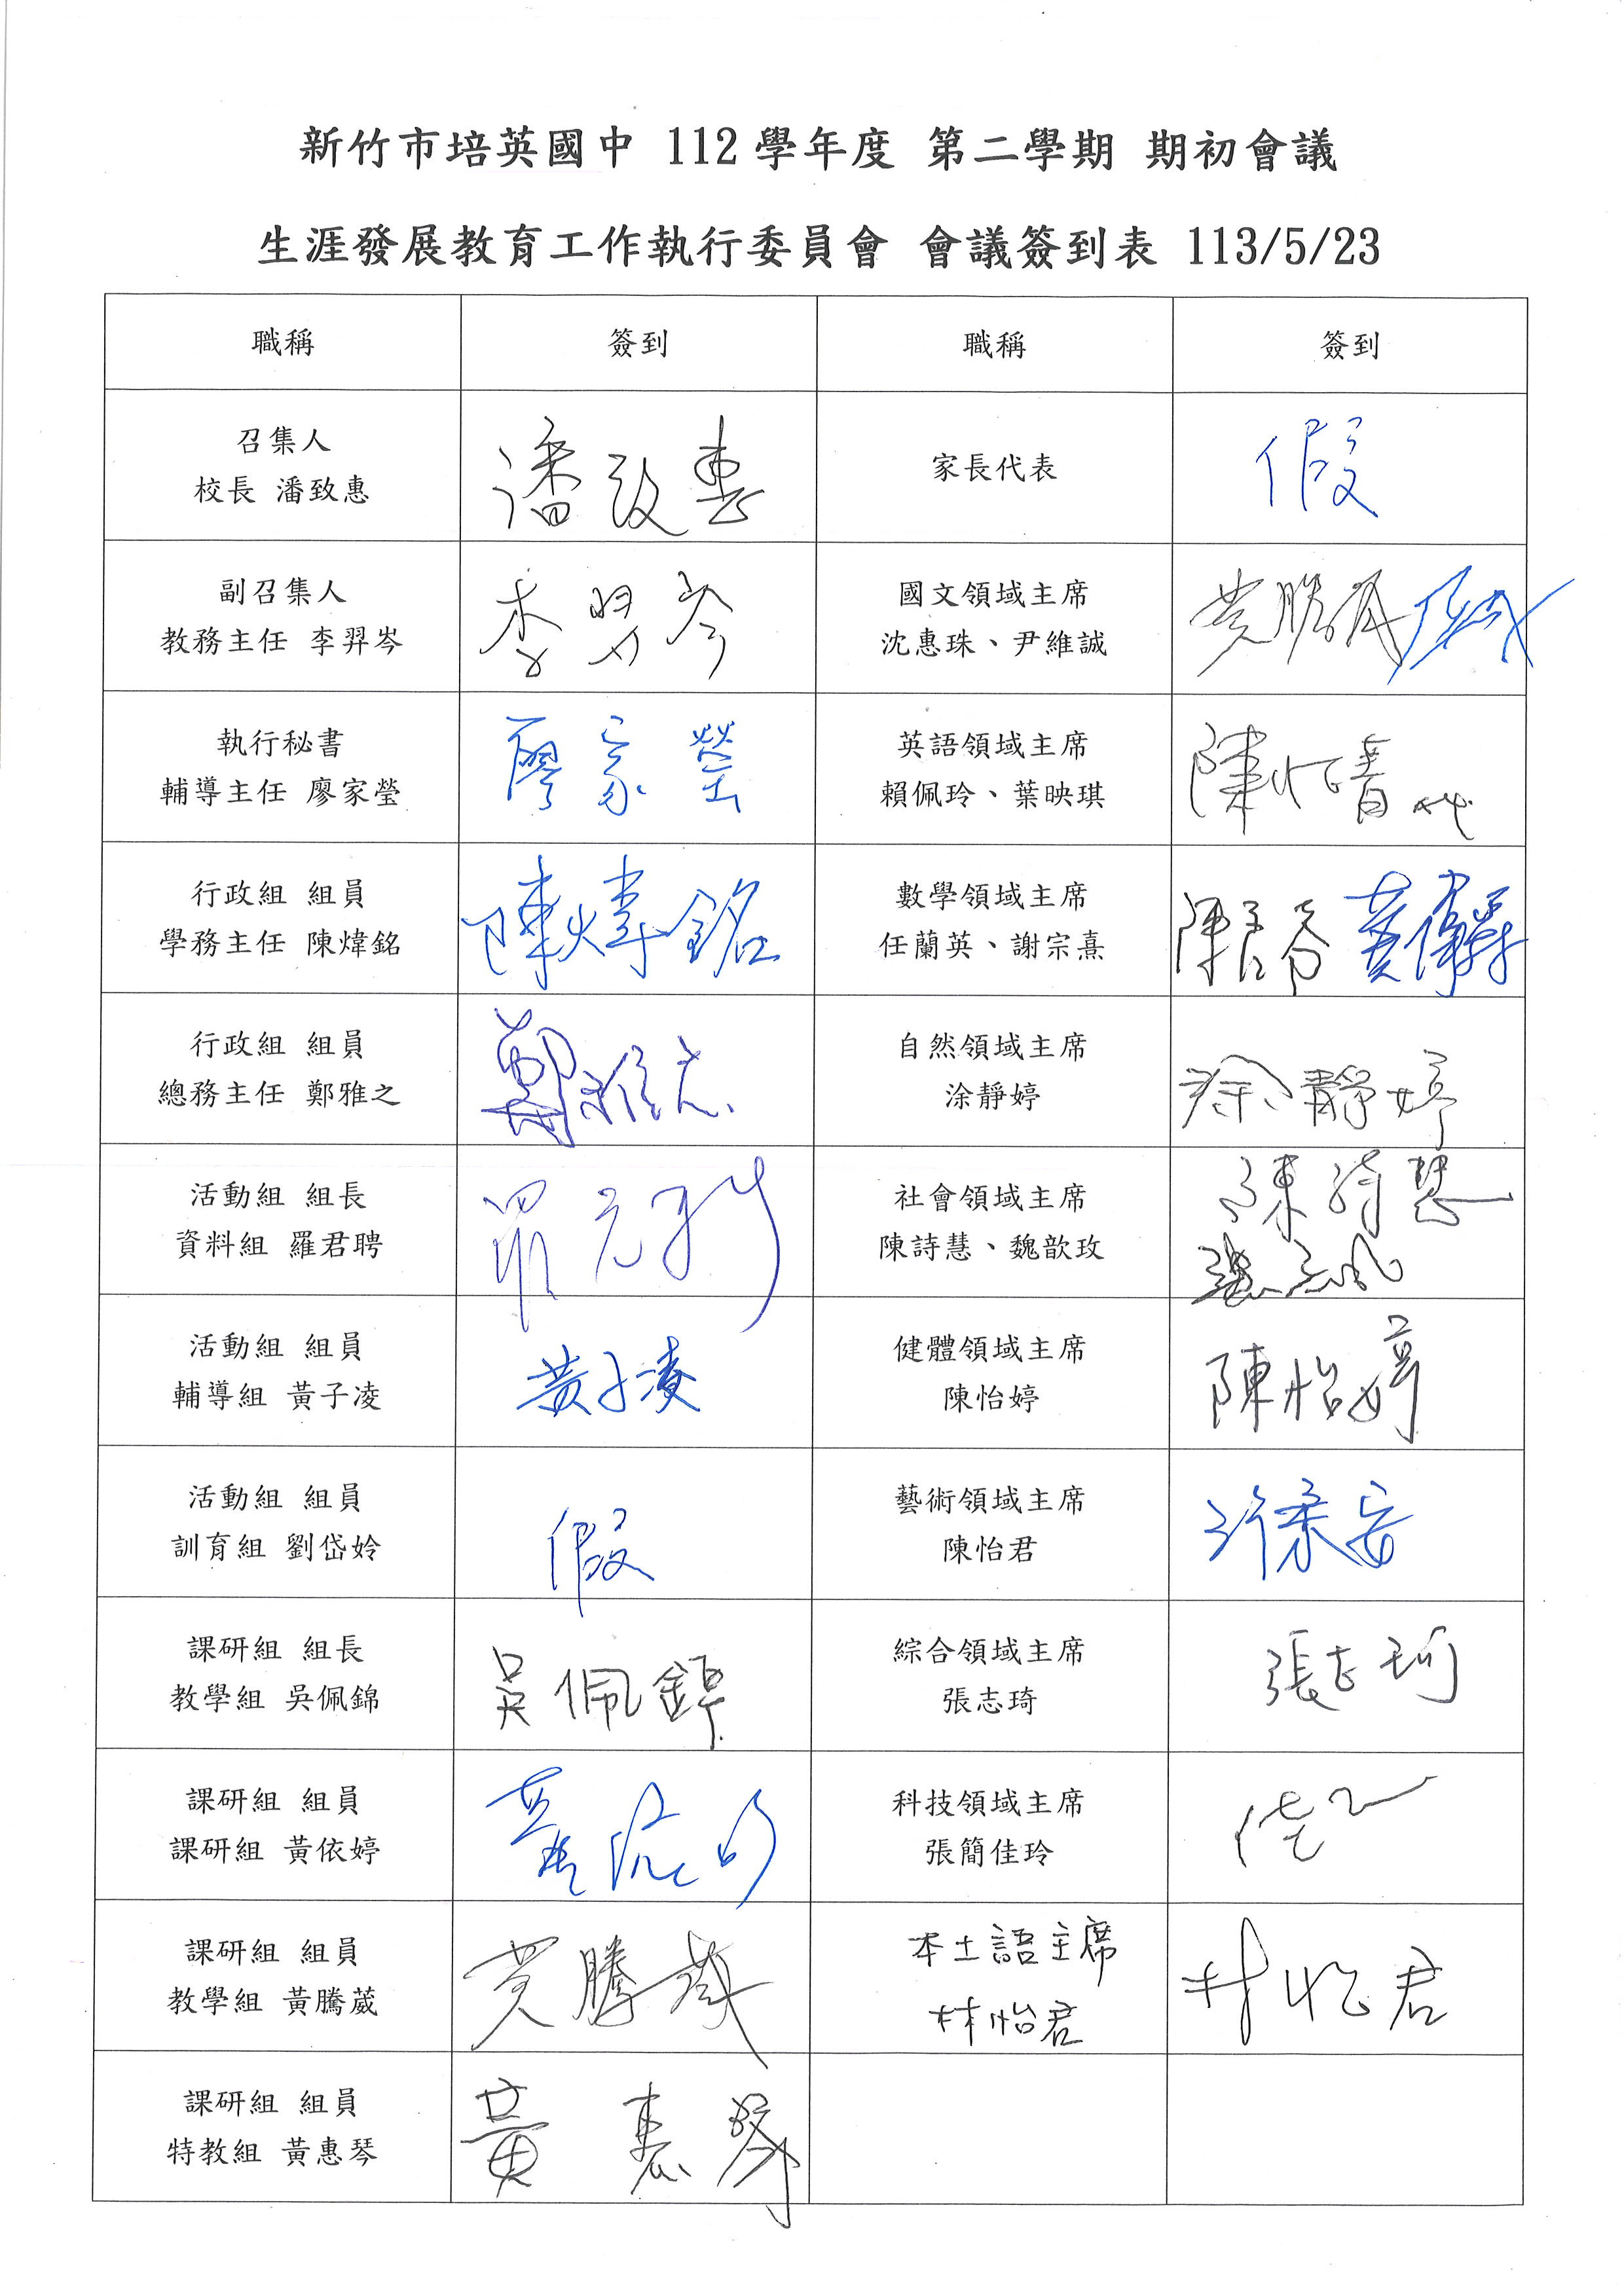 新竹市培英國中 112 學年度 第二學期 期初會議
生涯發展教育工作執行委員會 會議簽到表 113/5/23
職稱 簽到 職稱 簽到
召集人
校長 潘致惠
潘致惠
家長代表
假
副召集人
教務主任 李羿岑
李羿岑
國文領域主席
沈惠珠、尹維誠
黃騰葳
執行秘書
輔導主任 廖家瑩
廖家瑩
英語領域主席
賴佩玲、葉映琪
陳怡
行政組 組員
學務主任 陳煒銘
陳煒銘
數學領域主席
任蘭英、謝宗熹
行政組 組員
總務主任 鄭雅之
鄭雅之
自然領域主席
涂靜婷
涂靜婷
活動組 組長
資料組 羅君聘
社會領域主席
陳詩慧、魏歆玫
陳詩慧
活動組 組員
輔導組 黃子凌
黃子凌
健體領域主席
陳怡婷
陳怡婷
活動組 組員
訓育組 劉岱姈
假
藝術領域主席
陳怡君
許柔安
課研組 組長
教學組 吳佩錦
吳佩錦
綜合領域主席
張志琦
張志琦
課研組 組員
課研組 黃依婷
科技領域主席
張簡佳玲
課研組 組員
教學組 黃騰葳
黃騰葳
本土語主席
林怡君
林怡君
課研組 組員
特教組 黃惠琴
黃惠琴